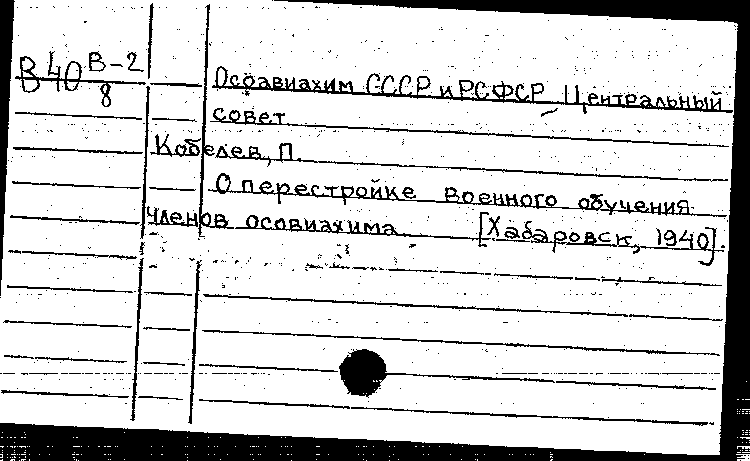 В40 В-2/8
Осоавиахим СССР и РСФСР Центральный
совет
Кобелев, П.
О перестройке военного обучения
членов осовиахима [Хабаровск, 1940].